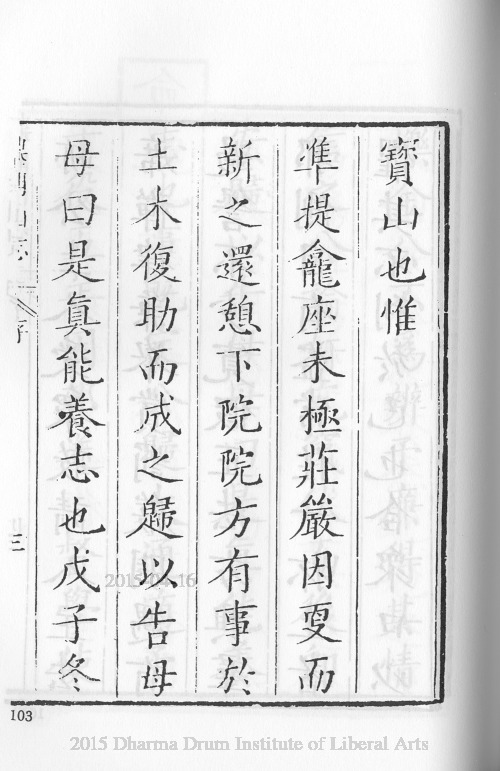 寶山也惟
準提龕座未極莊嚴因更而
新之還憩下院院方有事於
土木復助而成之歸以告母
母曰是眞能養志也戊子冬
山志
序
三
103
2015 Dharma Drum Institute of Liberal Arts